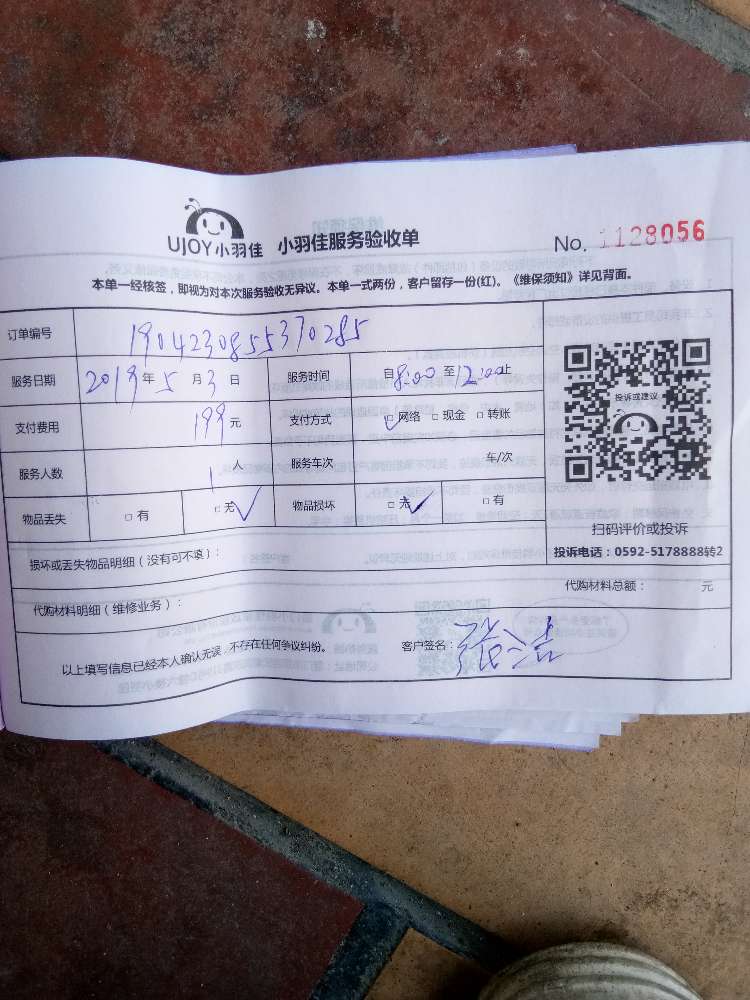 UJOY小羽佳 小羽佳服务验收单 No. 1128056
本单一经核签，即视为对本次服务验收无异议。本单一式两份，客户留存一份(红)。《维保须知》详见背面。
订单编号 1904230855370285
服务日期 2019年5月3日 服务时间 自8:00至12:00止
支付费用 199元 支付方式 ☑网络 □现金 □转账
服务人数 1人 服务车次 车/次
物品丢失 □有 ☑无 物品损坏 ☑无 □有
投诉或建议
扫码评价或投诉
投诉电话：0592-5178888转2
损坏或丢失物品明细（没有可不填）：
代购材料明细（维修业务）： 代购材料总额： 元
以上填写信息已经本人确认无误，不存在任何争议纠纷。 客户签名：